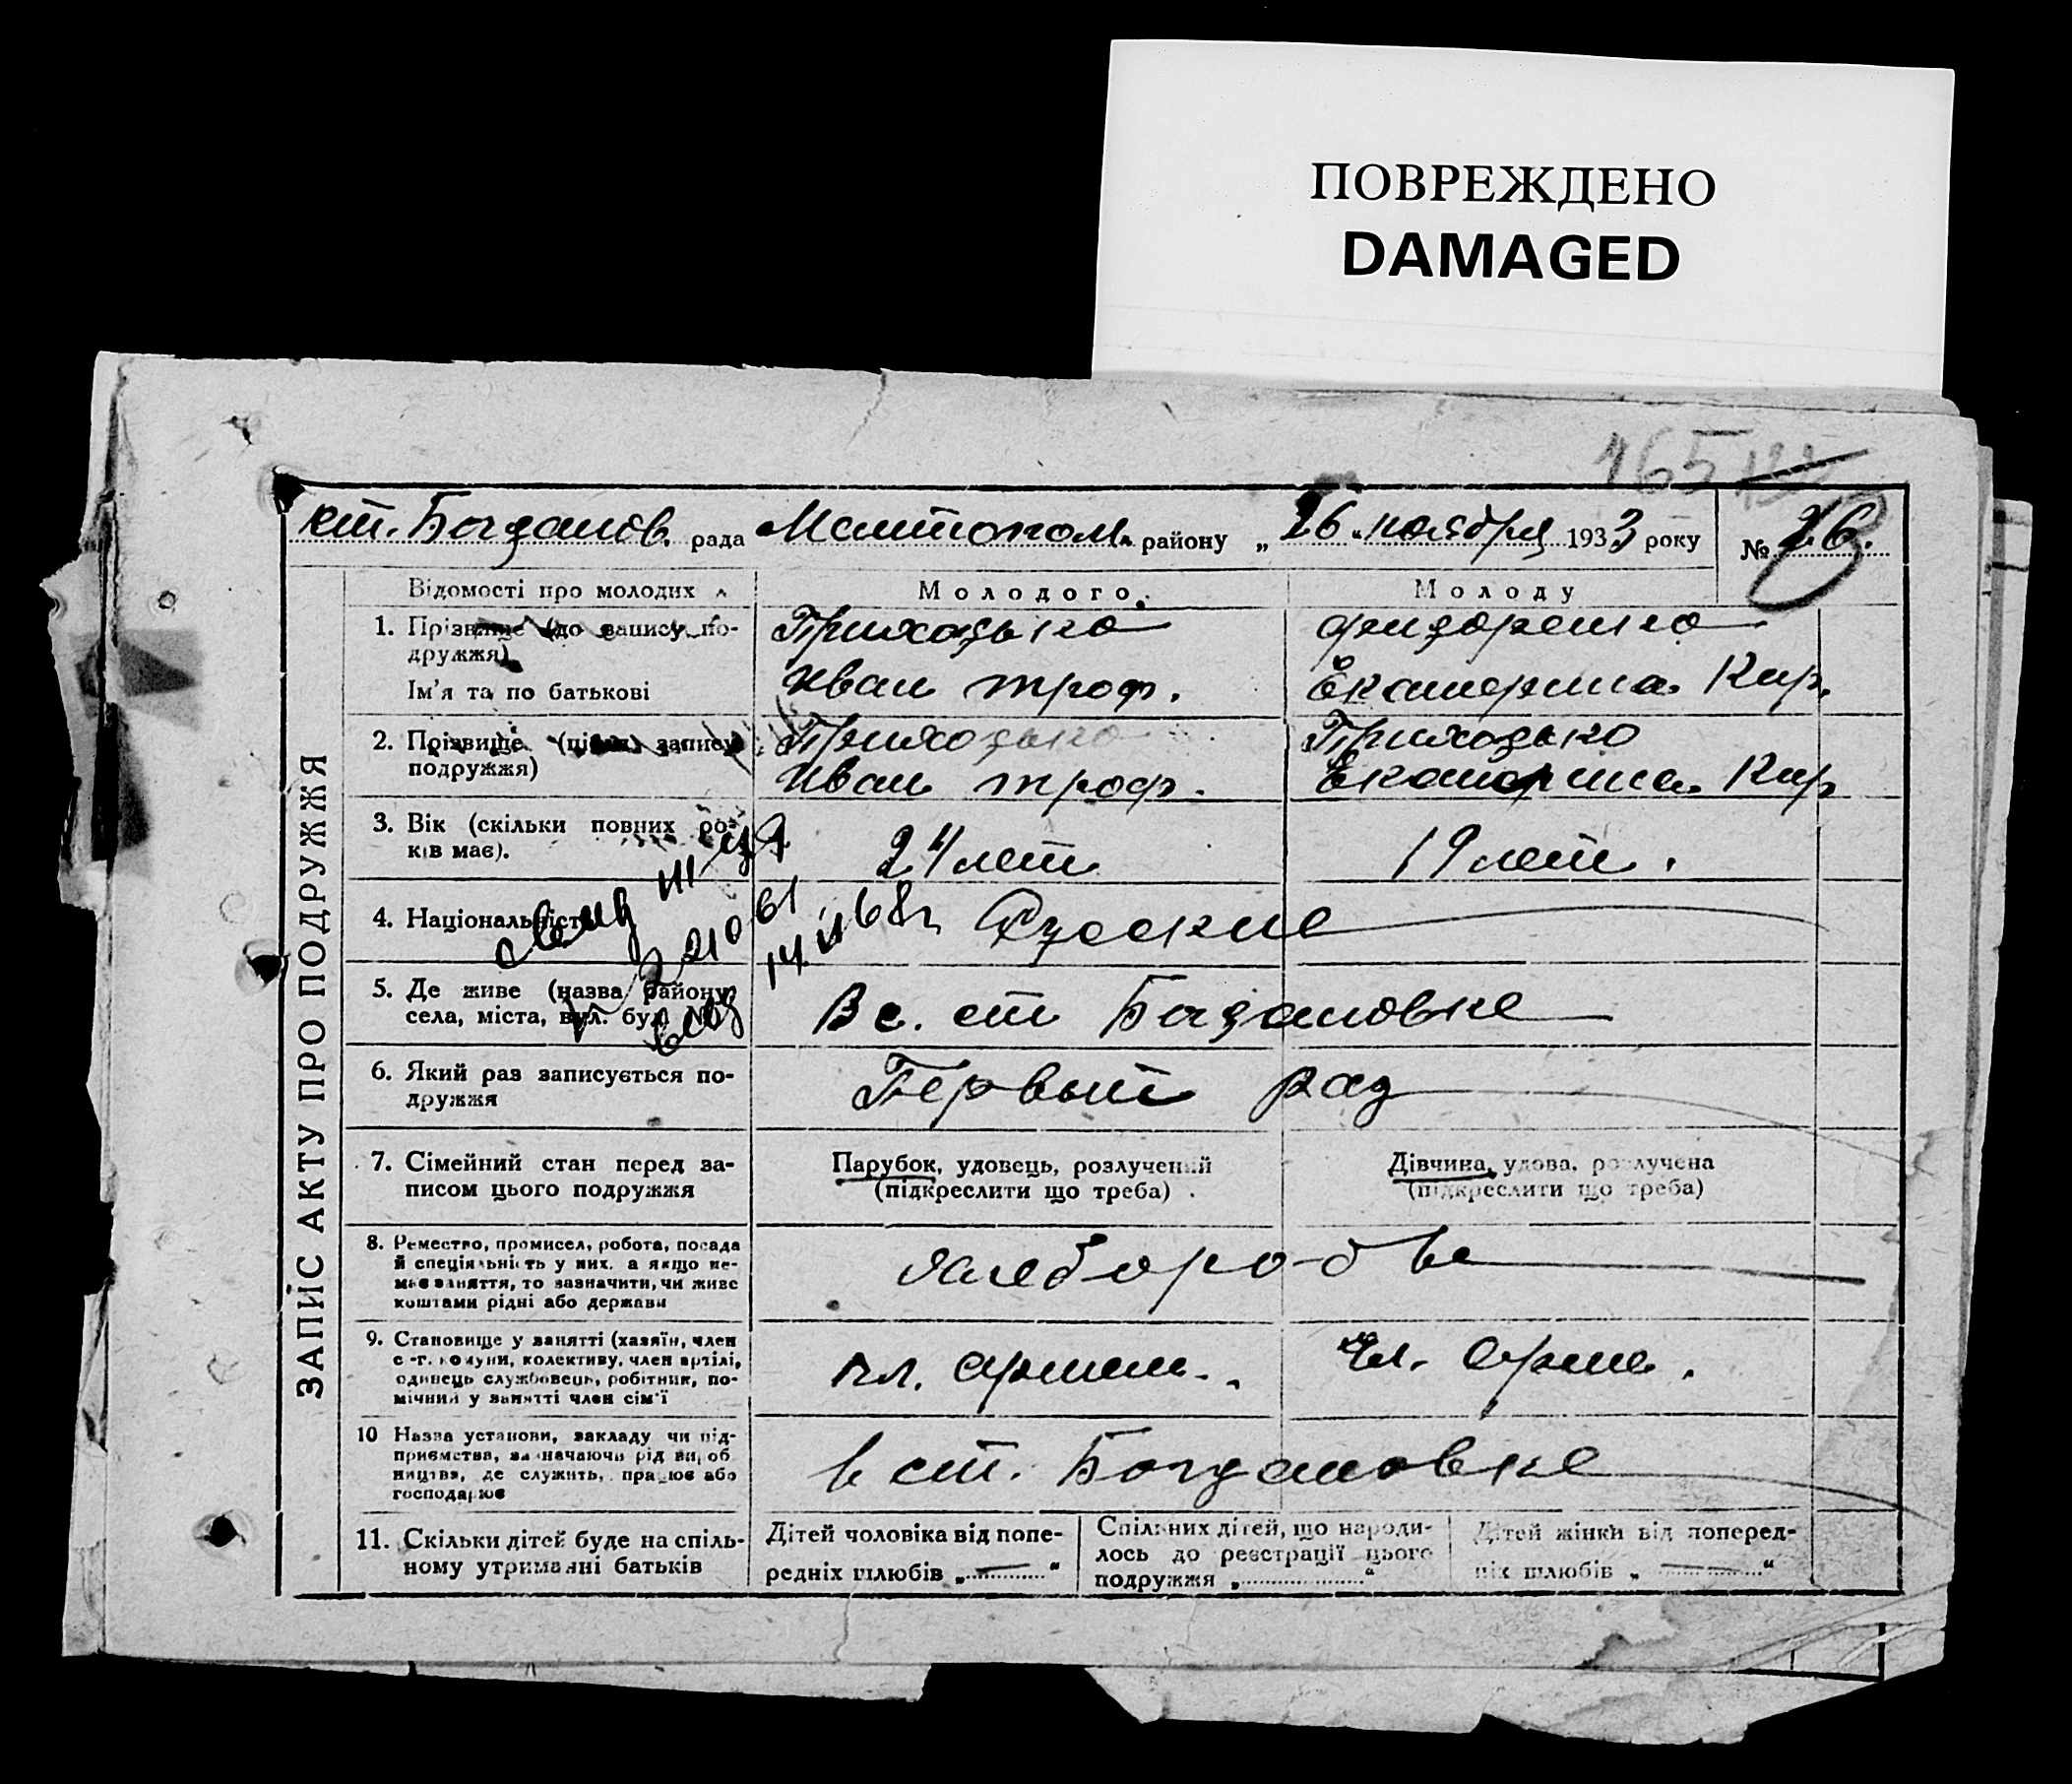 ПОВРЕЖДЕНО
DAMAGED
165
ст. Богданов. рада Мелитопол. району „26" ноября 1933 року № 26.
ЗАПИС АКТУ ПРО ПОДРУЖЖЯ
Відомості про молодих Молодого Молоду
1. Прізвище (до запису по- Приходько Фидоренко
дружжя)
Ім'я та по батькові Иван Троф. Екатерина Кир.
2. Прізвище (після запису Приходько Приходько
подружжя) Иван Троф. Екатерина Кир
3. Вік (скільки повних ро- 24 лет 19 лет.
ків має).
4. Національність Русские
14. 68г
5. Де живе (назва району, В с. ст Богдановке
села, міста, вул. буд. №)
6. Який раз записується по- Первый раз
дружжя
7. Сімейний стан перед за- Парубок, удовець, розлучений Дівчина, удова, розлучена
писом цього подружжя (підкреслити що треба) (підкреслити що треба)
8. Ремество, промисел, робота, посада хлеборобы
й спеціяльність у них, а якщо не-
має заняття, то зазначити, чи живе
коштами рідні або держави
9. Становище у занятті (хазяїн, член чл. артели. Чл. арте.
с.-г. комуни, колективу, член артілі,
одинець службовець, робітник, по-
мічний у занятті член сім'ї
10 Назва установи, закладу чи під- в ст. Богдановке
приємства, зазначаючи рід вироб
ництва, де служить, працює або
господарює
11. Скільки дітей буде на спіль- Дітей чоловіка від попе- Спільних дітей, що народи- Дітей жінки від поперед-
ному утриманні батьків редніх шлюбів „—" лось до реєстрації цього ніх шлюбів „—"
подружжя „"